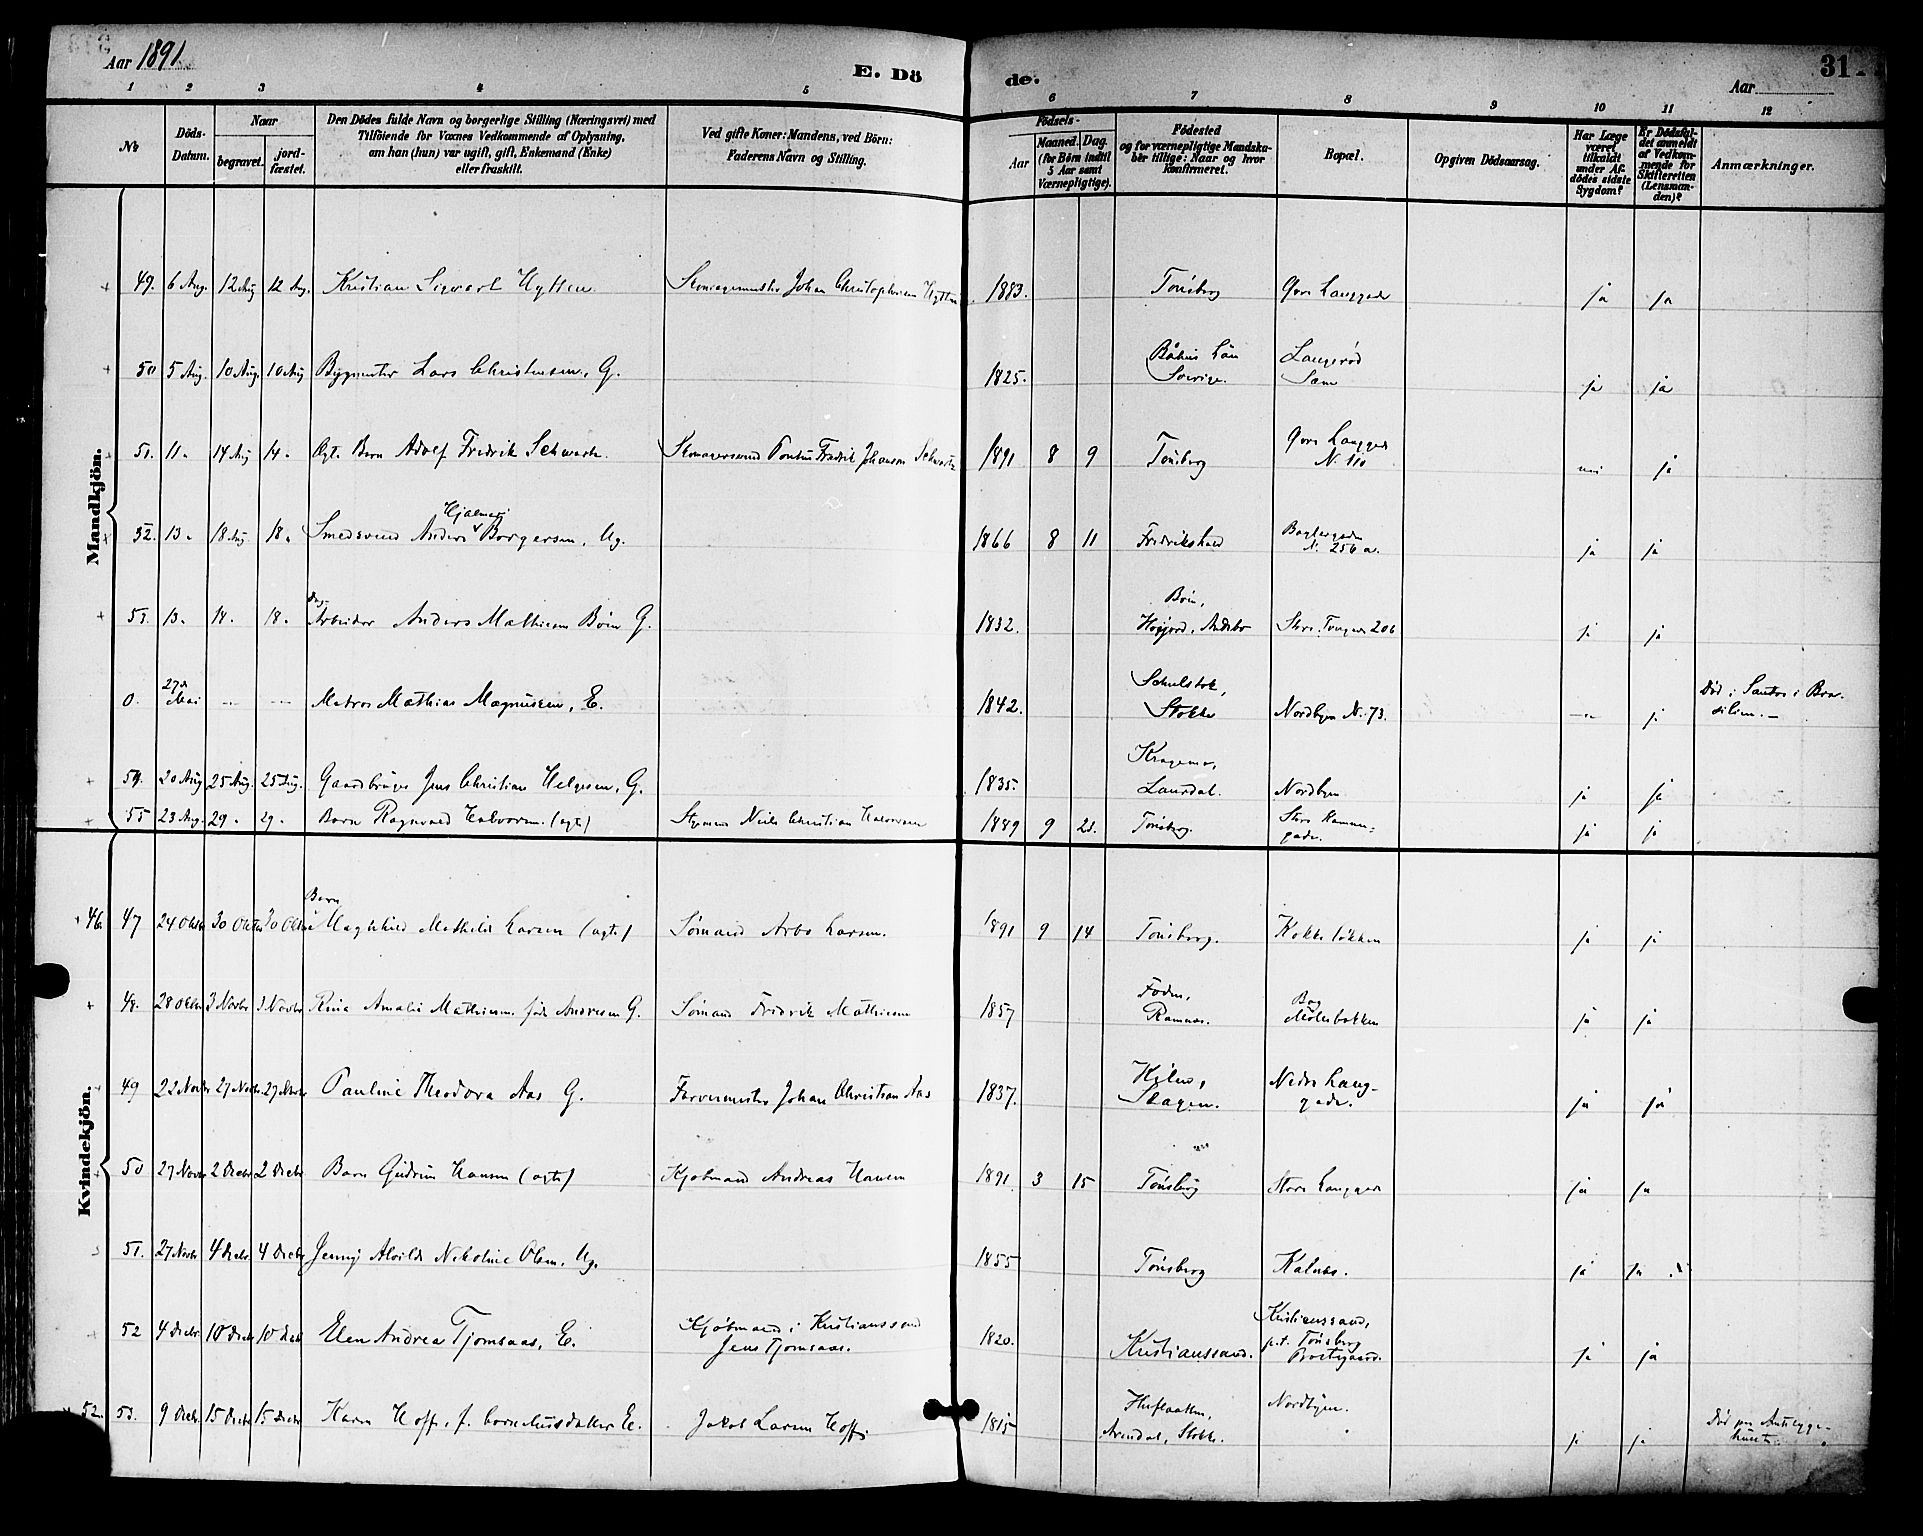 Aar 1891
E. Dö
de.
31
Aar
1 2 3 4 5 6 7 8 9 10 11 12
No
Döds-
Datum.
Naar
begravet.
jord-
fæstet.
Den Dödes fulde Navn og borgerlige Stilling (Næringsvei) med
Tilföiende for Voxnes Vedkommende af Oplysning,
om han (hun) var ugift, gift, Enkemand (Enke)
eller fraskilt.
Ved gifte Koner: Mandens, ved Börn:
Faderens Navn og Stilling.
Födsels-
Aar
Maaned. Dag.
(for Börn indtil
5 Aar samt
Værnepligtige).
Födested
og for værnepligtige Mandska-
ber tillige: Naar og hvor
konfirmeret.
Bopæl.
Opgiven Dödsaarsag.
Har Læge
været
tilkaldt
under Af-
dödes sidste
Sygdom?
Er Dödsfal-
det anmeldt
af Vedkom-
mende for
Skifteretten
(Lensman-
den)?
Anmærkninger.
Mandkjön.
49. 6 Aug. 12 Aug 12 Aug. Kristian Sigvart Hytten. Skomagermester Johan Christophersen Hytten 1883. Tönsberg Övre Langgade ja ja
50 5 Aug. 10 Aug. 10 Aug Bygmester Lars Christensen, G. 1825. Båhus Län Sverige. Langerød Sæm ja ja
51. 11 " 14 Aug 14 " Ægt. Barn Adolf Fredrik Schwartz. Skomagersvend Pontus Fredrik Johansen Schwartz 1891 8 9 Tönsberg Övre Langgade N. 110 nei ja
52. 13 " 18 Aug 18 " Smedsvend Anders Hjalmar Borgersen, Ug. 1866 8 11 Fredrikshald Baglergaden N. 256 a. ja ja
53. 13 " 18 " 18 " Dag-Arbeider Anders Mathisen Böen G. 1832. Böen, Høijord, Andebu Stor. 206 ja ja
0. 27de Mai — — Matros Mathias Magnussen, E. 1842. Stokke Nordbyen N. 73. — ja Död i Santos i Bra-
silien. —
54. 20 Aug 25 Aug. 25 Aug. Gaardbruger Jens Christian Helgesen, G. 1835. Laurdal. Nordbyen ja ja
55 23 Aug. 29 " 29 " Barn Ragnvald Halvorsen. (ægte) Styrmand Niels Christian Halvorsen 1889 9 Tönsberg. Store gade. ja ja
Kvindekjön.
46. 47 24 Oktr 30 Oktr 30 Oktr Barn Magnhild Mathilde Larsen (ægte) Sømand Arbo Larsen. 1891 9 14 Tönsberg. Kokkeløkken ja ja
48. 28 Oktr 3 Novbr 3 Novbr Rina Amalie Mathisen født Andresen G. Sømand Fredrik Mathisen 1857 Foden, Ramnæs. Bag Møllebakken ja ja
49 22 Novbr 27 Novbr. 27 Novbr Pauline Theodora Aas G. Farvermester Johan Christian Aas 1837. Kilen, Slagen. Nedre Lang-
gade. ja ja
50 27 Novbr 2 Decbr 2 Decbr Barn Gudrun Hansen (ægte) Kjøbmand Andreas Hansen 1891. 3 15 Tönsberg Store Langgade ja ja
51. 27 Novbr 4 Decbr. 4 Decbr Jenny Alvilde Nikoline Olsen. Ug. 1855 Tönsberg Kalnes. ja ja
52 4 Decbr 10 Decbr 10 Decbr Elen Andrea Tjomsaas, E. Kjøbmand i Kristianssand
Jens Tjomsaas. 1820. Kristianssand. Kristianssand,
p.t. Tönsberg ja ja
52. 53. 9 Decbr. 15 Decbr 15 Decbr Karen Hoff, f. Corneliusdatter E. Jakob Larsen Hoff 1815 Arendal, Stokke. Nordbyen. ja ja Död paa
huset.